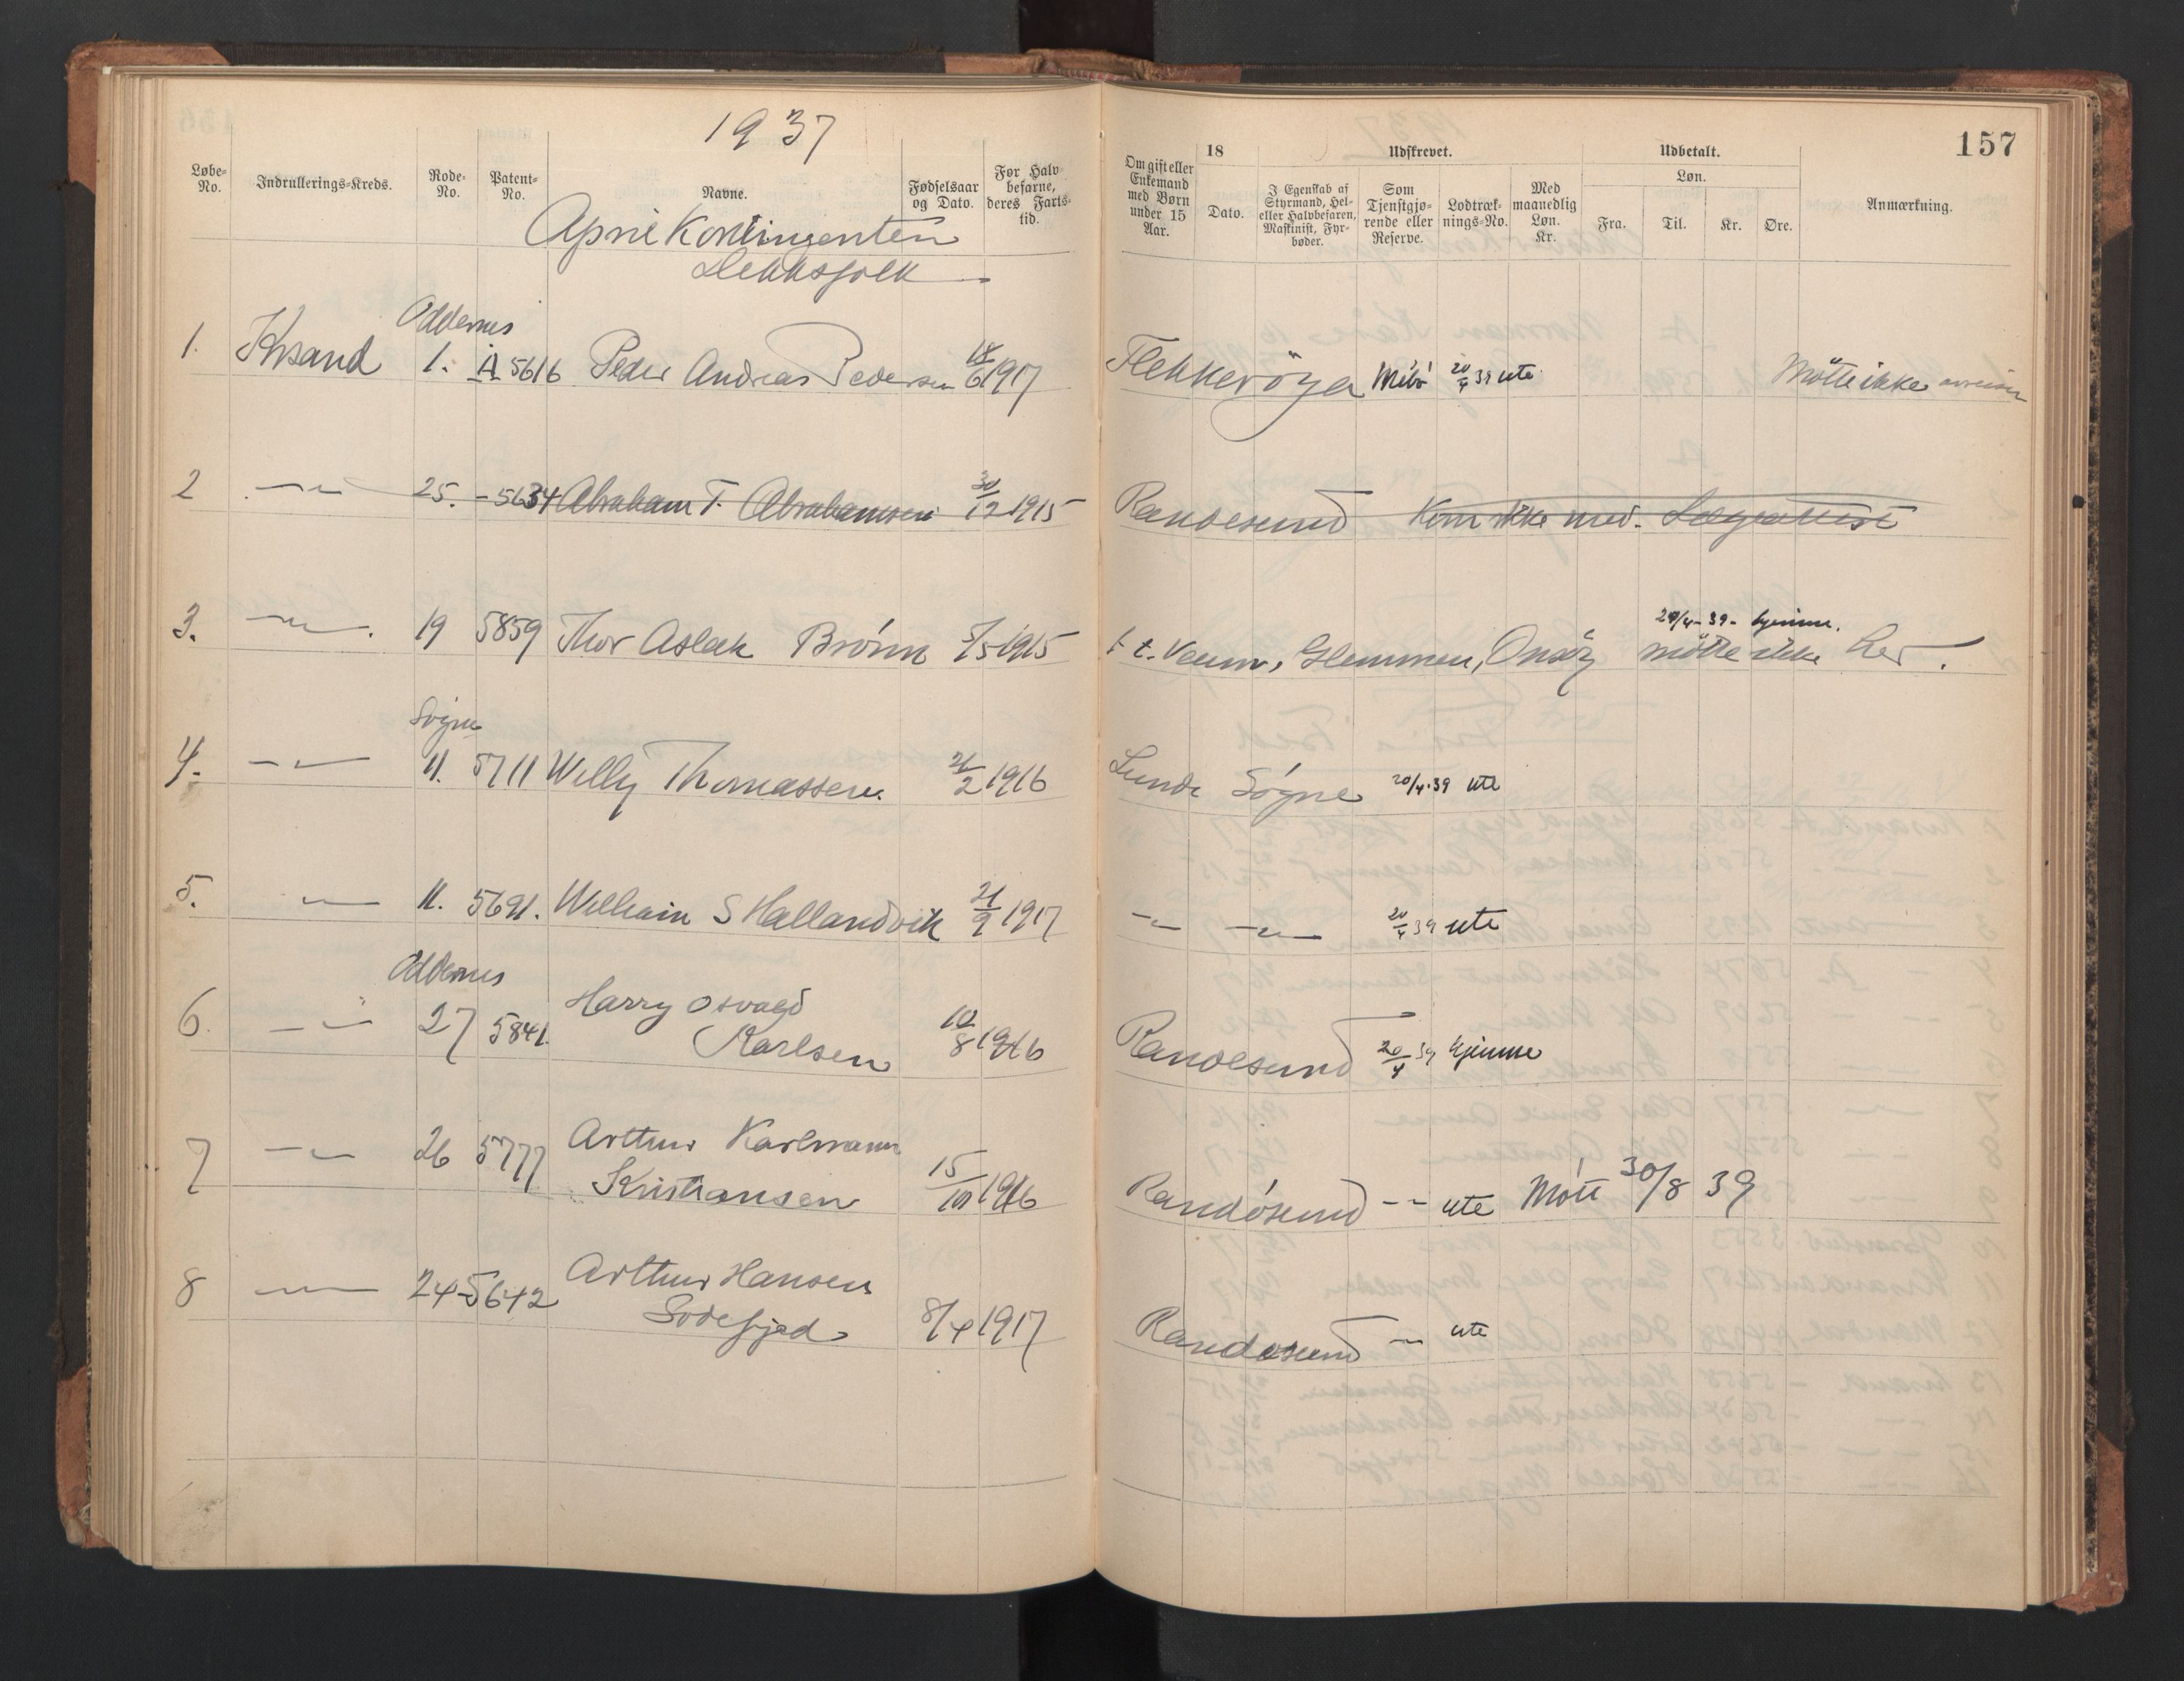 1937
157
Løbe-No.
Indrullerings-Kreds.
Rode-No.
Patent-No.
Navne.
Fødselsaar og Dato.
For Halvbefarne, deres Fartstid.
Om gift eller Enkemand med Børn under 15 Aar.
18
Dato.
Udskrevet.
I Egenskab af Styrmand, Hel- eller Halvbefaren, Maskinist, Fyrbøder.
Som Tjenstgjørende eller Reserve.
Lodtræknings-No.
Med maanedlig Løn. Kr.
Udbetalt.
Løn.
Fra.
Til.
Kr.
Øre.
Anmærkning.
April Kontingenten
Dekksfolk
Oddernes
1. Krsand 1. A 5616 Peder Andreas Pedersen 18/6 1917 Flekkerøya 20/4 39 ute Møtte ikke
2 -"- 25. - 5634 Abraham T. Abrahamsen 30/12 1915 Randesund Kom ikke med. Legeattest
20/4-39- hjemme.
3. -"- 19 5859 Thor Aslak Brönn 7/5 1915 t. Glemmen, Onsöy møtte ikke her.
Søgne
4. -"- 11. 5711 Willy Thomassen 21/2 1916 Lunde Søgne 20/4-39 ute
5. -"- 11. 5691. William S Hallandvik 21/9 1917 -"- -"- 20/4 39 ute
Oddernes
6. -"- 27 5841. Harry Osvald
Karlsen 10/8 1916 Randesund 20/4 39 hjemme
7 -"- 26 5777 Arthur Karlmann
Kristiansen 15/10 1916 Randøsund -"- ute Møtt 30/8 39
8 -"- 24 5642 Arthur Hansen
Sodefjed 8/4 1917 Randøsund -"- ute